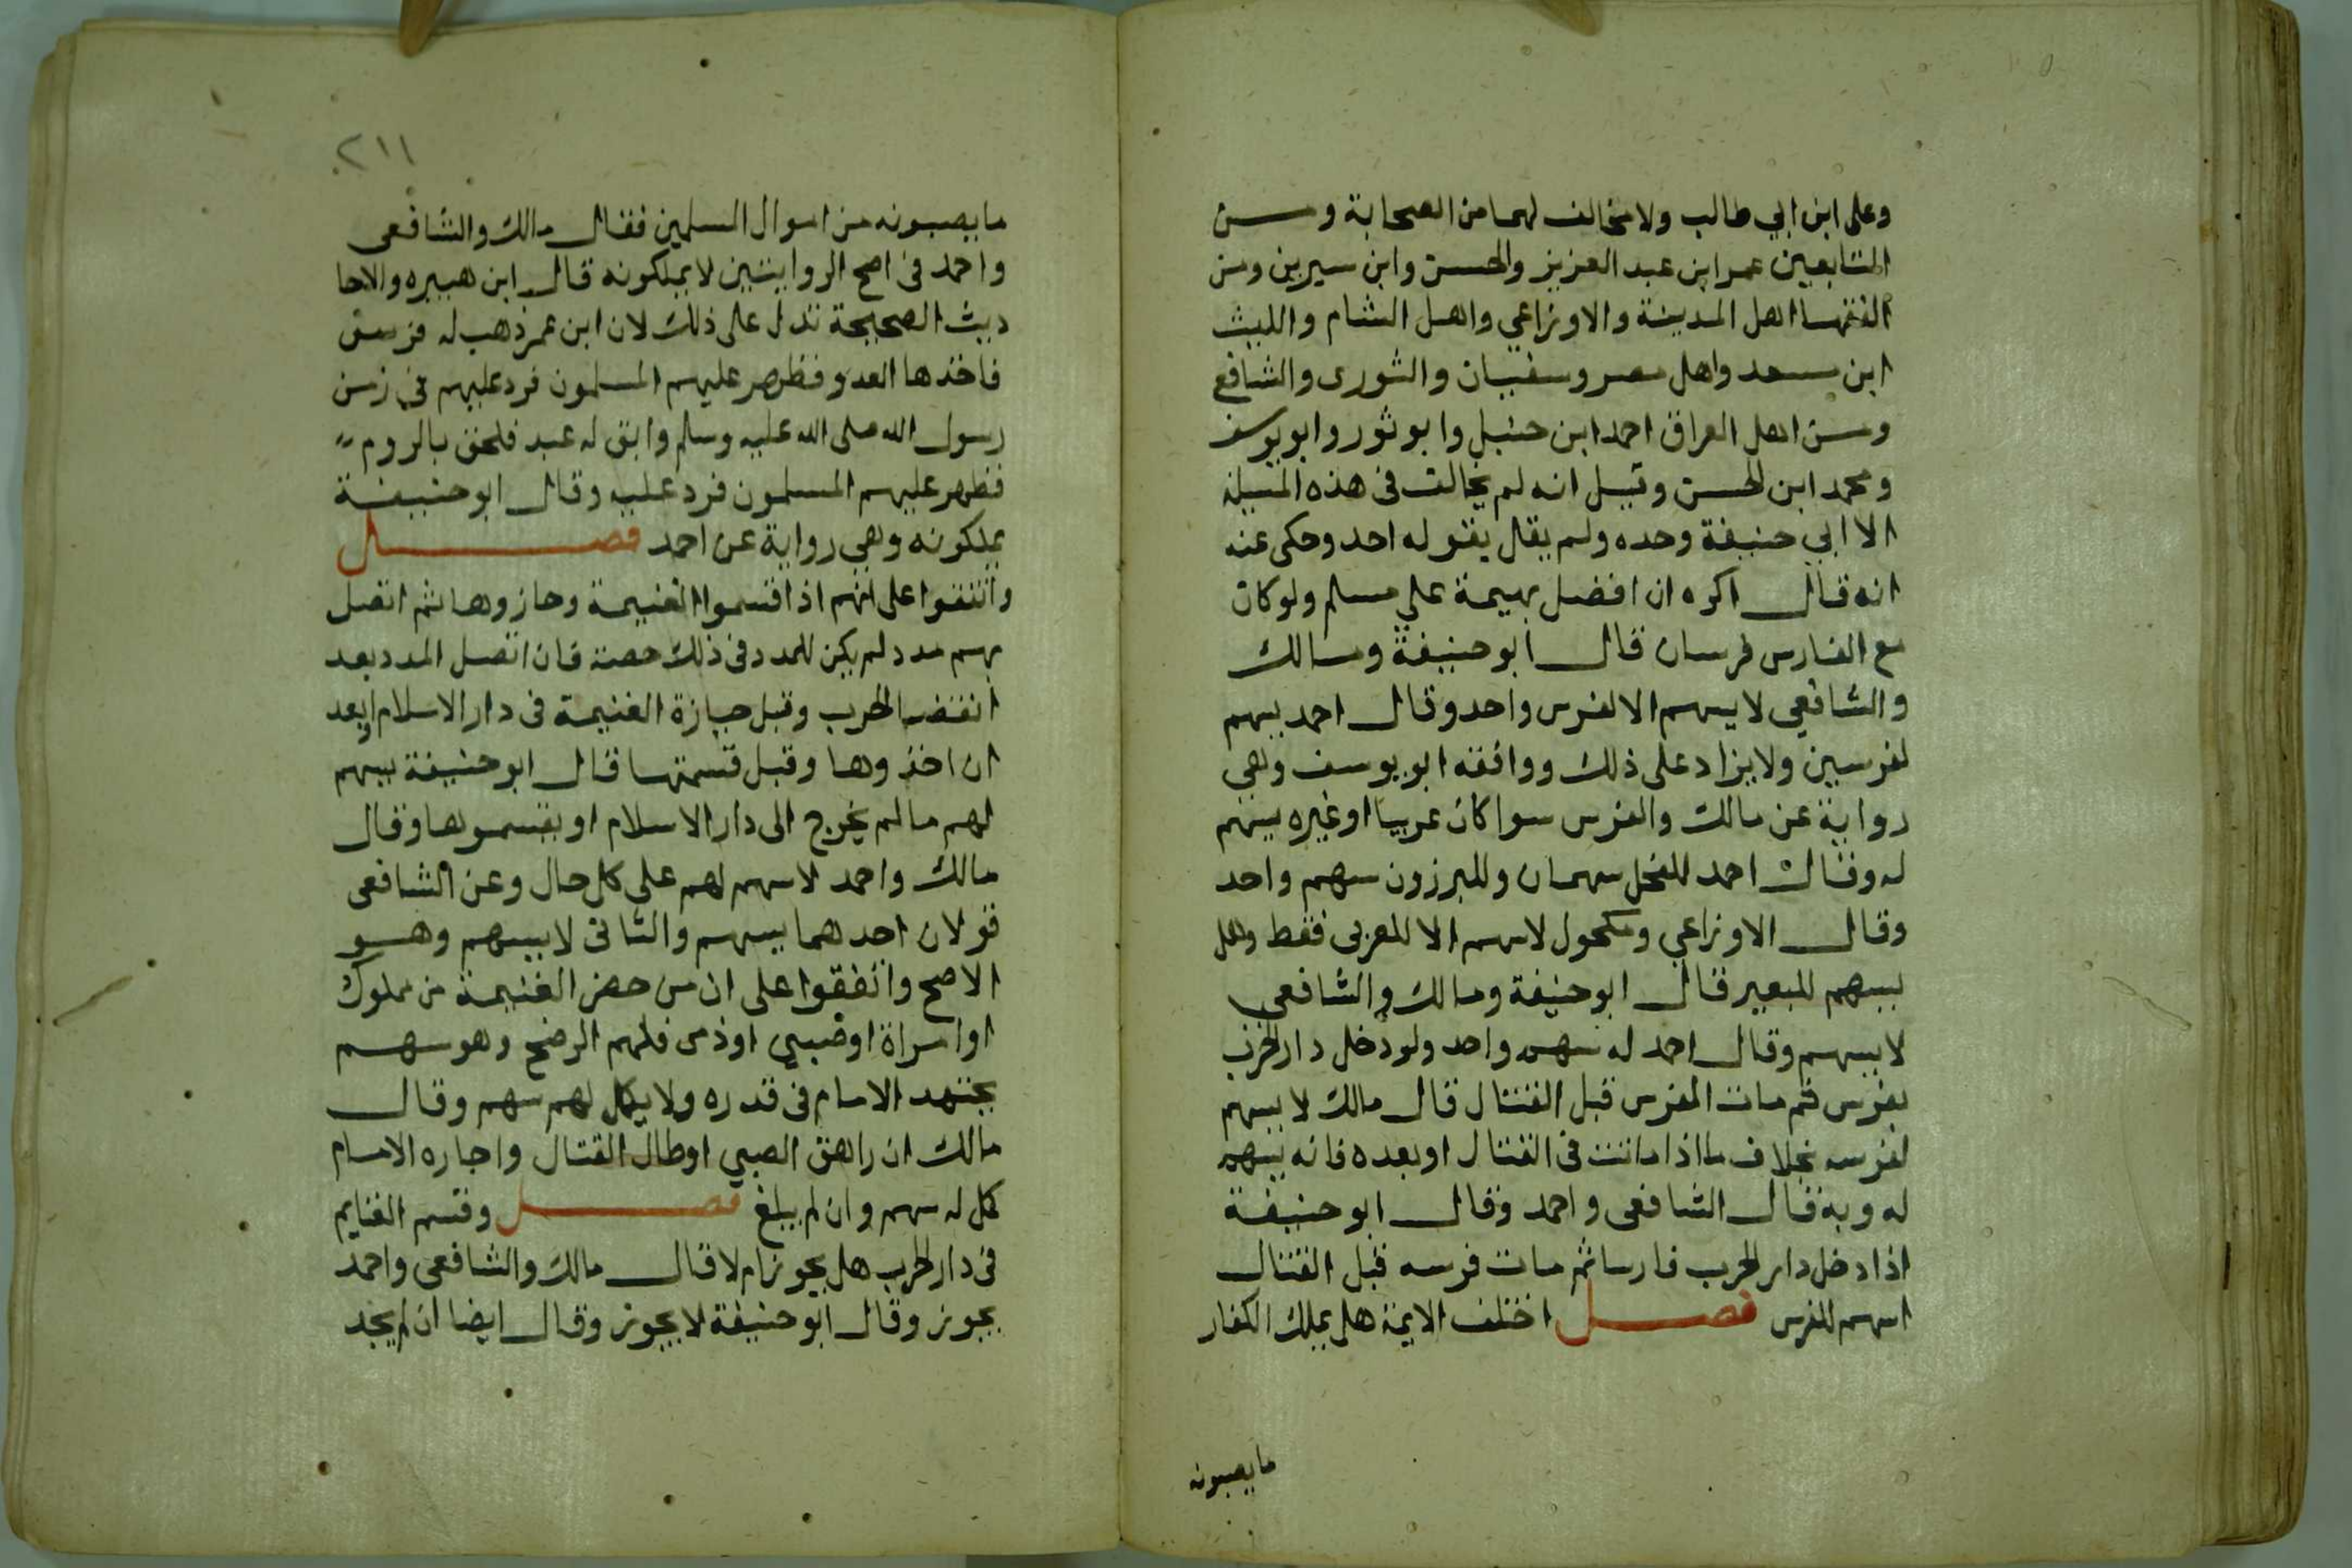 وعلى ابن ابي طالب ولا مخالف لهما من الصحابة ومن
التابعين عمر ابن عبد العزيز والحسن وابن سيرين ومن
الفقهاا اهل المدينة والاوزاعي واهل الشام والليث
ابن سعد واهل مصر وسفيان والثورى والشافع
ومن اهل العراق احمد ابن حنبل وابو ثور وابو يوسف
ومحمد ابن الحسن وقيل انه لم يخالف فى هذه المسيلة
الا ابي حنيفة وحده ولم يقال بقوله احد وحكى عنه
انه قال اكره ان افضل بهيمة علي مسلم ولو كان
مع الفارس فرسان قال ابو حنيفة ومالك
والشافعي لا يسهم الا لفرس واحد وقال احمد يسهم
لفرسين ولا يزاد على ذلك ووافقه ابو يوسف وهي
رواية عن مالك والفرس سوا كان عربيا او غيره يسهم
له وقال احمد للفحل سهمان وللبرزون سهم واحد
وقال الاوزاعي ومكحول لا يسهم الا للعربى فقط وهل
يسهم للبعير قال ابو حنيفة ومالك والشافعي
لا يسهم وقال احمد له سهم واحد ولو دخل دار الحرب
بفرس ثم مات الفرس قبل القتال قال مالك لا يسهم
لفرسه بخلاف ما اذا ماتت فى القتال او بعده فانه يسهم
له وبه قال الشافعى واحمد وقال ابو حنيفة
اذا دخل دار الحرب فارسا ثم مات فرسه قبل القتال
اسهم للفرس فصل اختلف الايمة هل يملك الكفار
ما يصيبونه
٢١١
ما يصيبونه من اموال المسلمين فقال مالك والشافعى
واحمد فى اصح الروايتين لا يملكونه قال ابن هبيره والاحا
ديث الصحيحة تدل على ذلك لان ابن عمر ذهب له فرس
فاخذها العدو فظهر عليهم المسلمون فرد عليهم فى زمن
رسول الله صلى الله عليه وسلم وابق له عبد فلحق بالروم
فظهر عليهم المسلمون فرد عليه وقال ابو حنيفة
يملكونه وهى رواية عن احمد فصل
واتفقوا على انهم اذا قسموا الغنيمة وحازوها ثم اتصل
بهم مدد لم يكن للمدد فى ذلك حصة فان اتصل المدد بعد
انقضا الحرب وقبل حيازة الغنيمة فى دار الاسلام او بعد
ان اخذوها وقبل قسمتها قال ابو حنيفة يسهم
لهم ما لم يخرج الى دار الاسلام او يقسموها وقال
مالك واحمد لا سهم لهم على كل حال وعن الشافعى
قولان احدهما يسهم والثانى لا يسهم وهو
الاصح واتفقوا على ان من حضر الغنيمة من مملوك
او امراة او صبي او ذمى فلهم الرضخ وهو سهم
يجتهد الامام فى قدره ولا يكمل لهم سهم وقال
مالك ان راهق الصبي اوطال القتال واجاره الامام
كمل له سهم وان لم يبلغ فصل وقسم الغنايم
فى دار الحرب هل يجوز ام لا قال مالك والشافعى واحمد
يجوز وقال ابو حنيفة لا يجوز وقال ايضا ان لم يجد